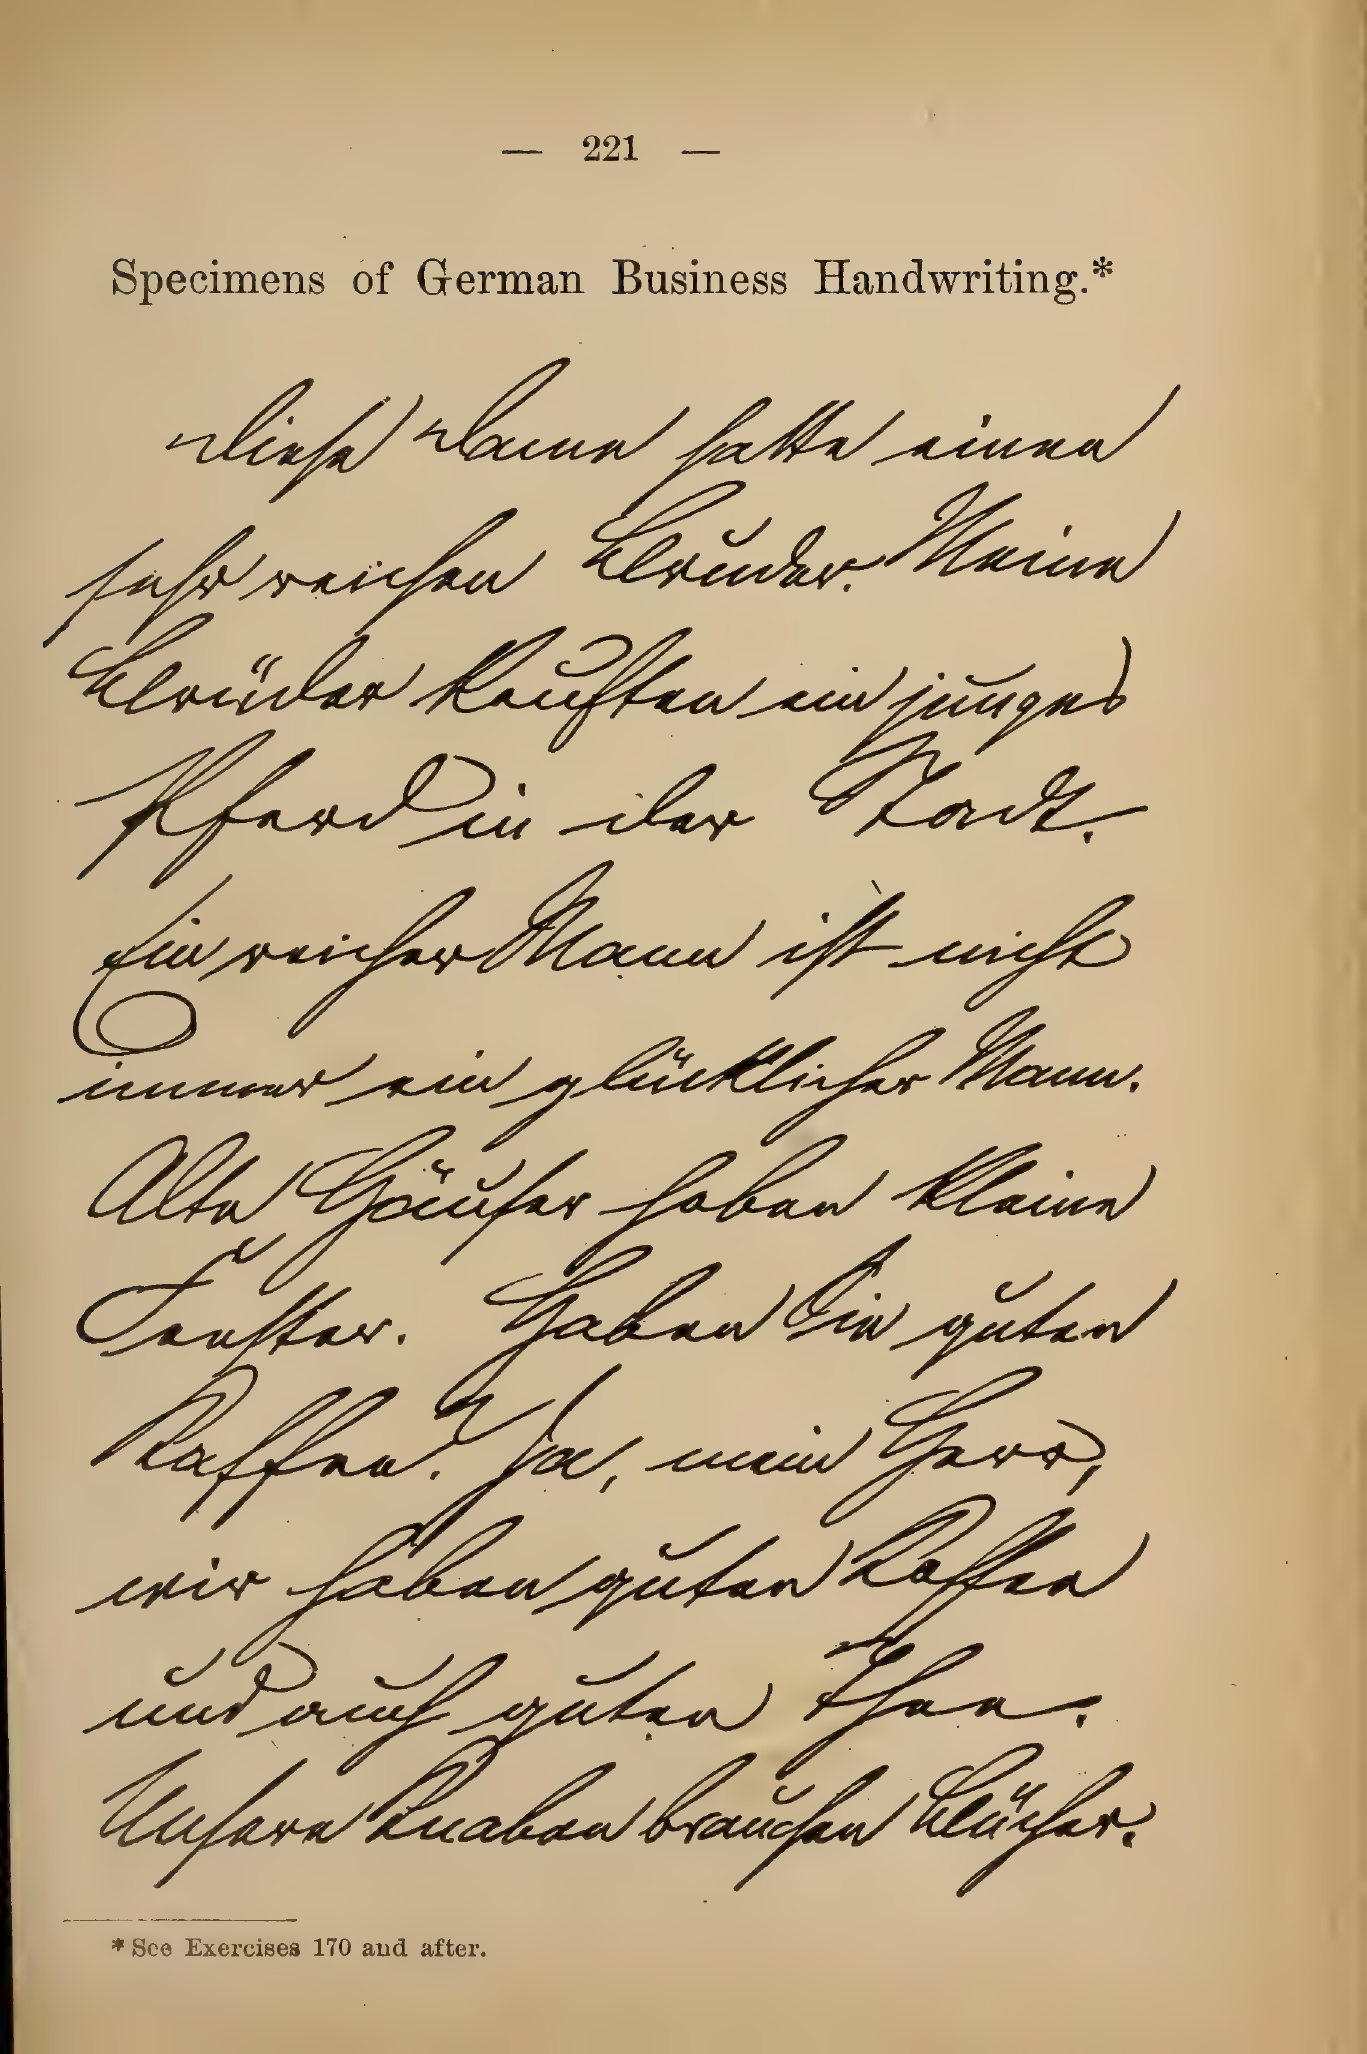 — 221 —
Specimens of German Business Handwriting.*
Diese Dame hatte einen
sehr reichen Bruder. Meine
Brüder kauften ein junges
Pferd in der Stadt.
Ein reicher Mann ist nicht
immer ein glücklicher Mann.
Alte Häuser haben kleine
Fenster. Haben Sie guten
Kaffee? Ja, mein Herr,
wir haben guten Kaffee
und auch guten Thee.
Unsere Knaben brauchen Bücher.
* See Exercises 170 and after.